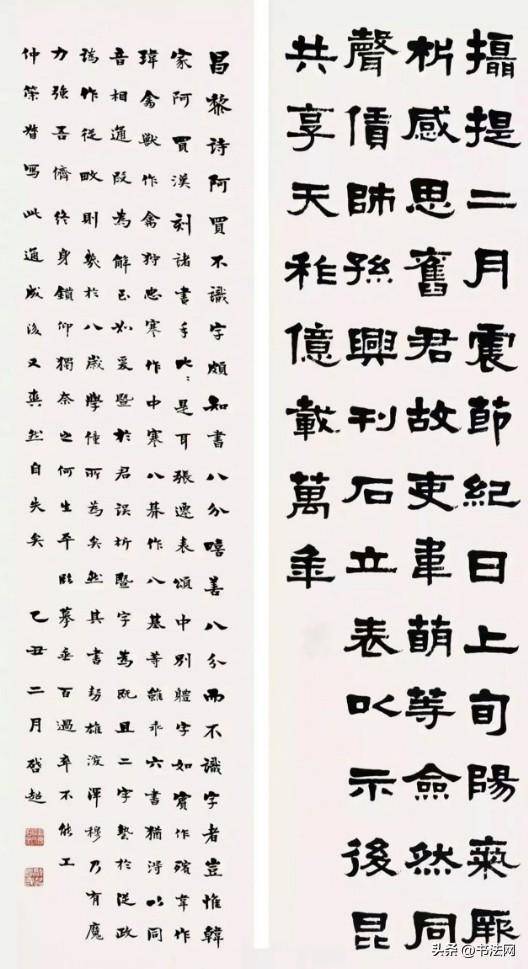 攝提二月震節紀日上旬陽氣厥
析感思舊君故吏韋萌等僉然同
聲僨師孫興刊石立表以示後昆
共享天祚億載萬年
昌黎詩阿買不識字頗知書八分嘻善八分而不識字者豈惟韓
家阿買漢刻諸書手比比是耳張遷表頌中別體字如賓作殯韋作
瑋禽獸作禽狩忠謇作中謇八朞作八基等雖乖六書猶得以同
音相通叚為解至如爰暨於君誤析暨字為既且二字埶於從政
譌作從畋則幾於八歲學僮所為矣然其書勢雄深渾穆乃有魔
力強吾儕終身鑽仰獨奈之何生平臨摹垂百過卒不能工
仲策督寫此通成後又爽然自失矣 乙丑二月啟超
头条 @书法网